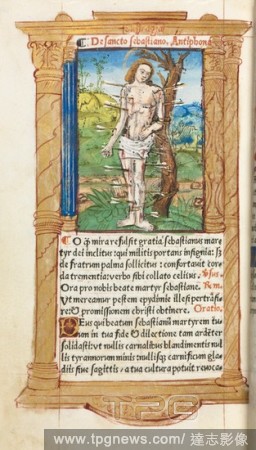 De sancto sebastiano. Antiphona
O q̄ mira refulsit gratia sebastianus mar
tyr dei inclitus: qui militis portans insignia: s;
de fratrum palma sollicitus: confortauit cor
da trementia: verbo sibi collato celitus. v̄sus.
Ora pro nobis beate martyr sebastiane. Re m.
Ut mereamur pestem epydimie illesi ptrāsi
re: promissionem christi obtinere. Oratio.
Deus qui beatum sebastianū martyrem tu
um in tua fide dilectione tam ardēter
solidasti vt nullis carnalibus blandimentis nul
lis tyrannorum minis nullisq; carnificum gla
diis siue sagittis, a tua cultura potuit reuoca
TPG
www.tpgnews.com/ 達志影像